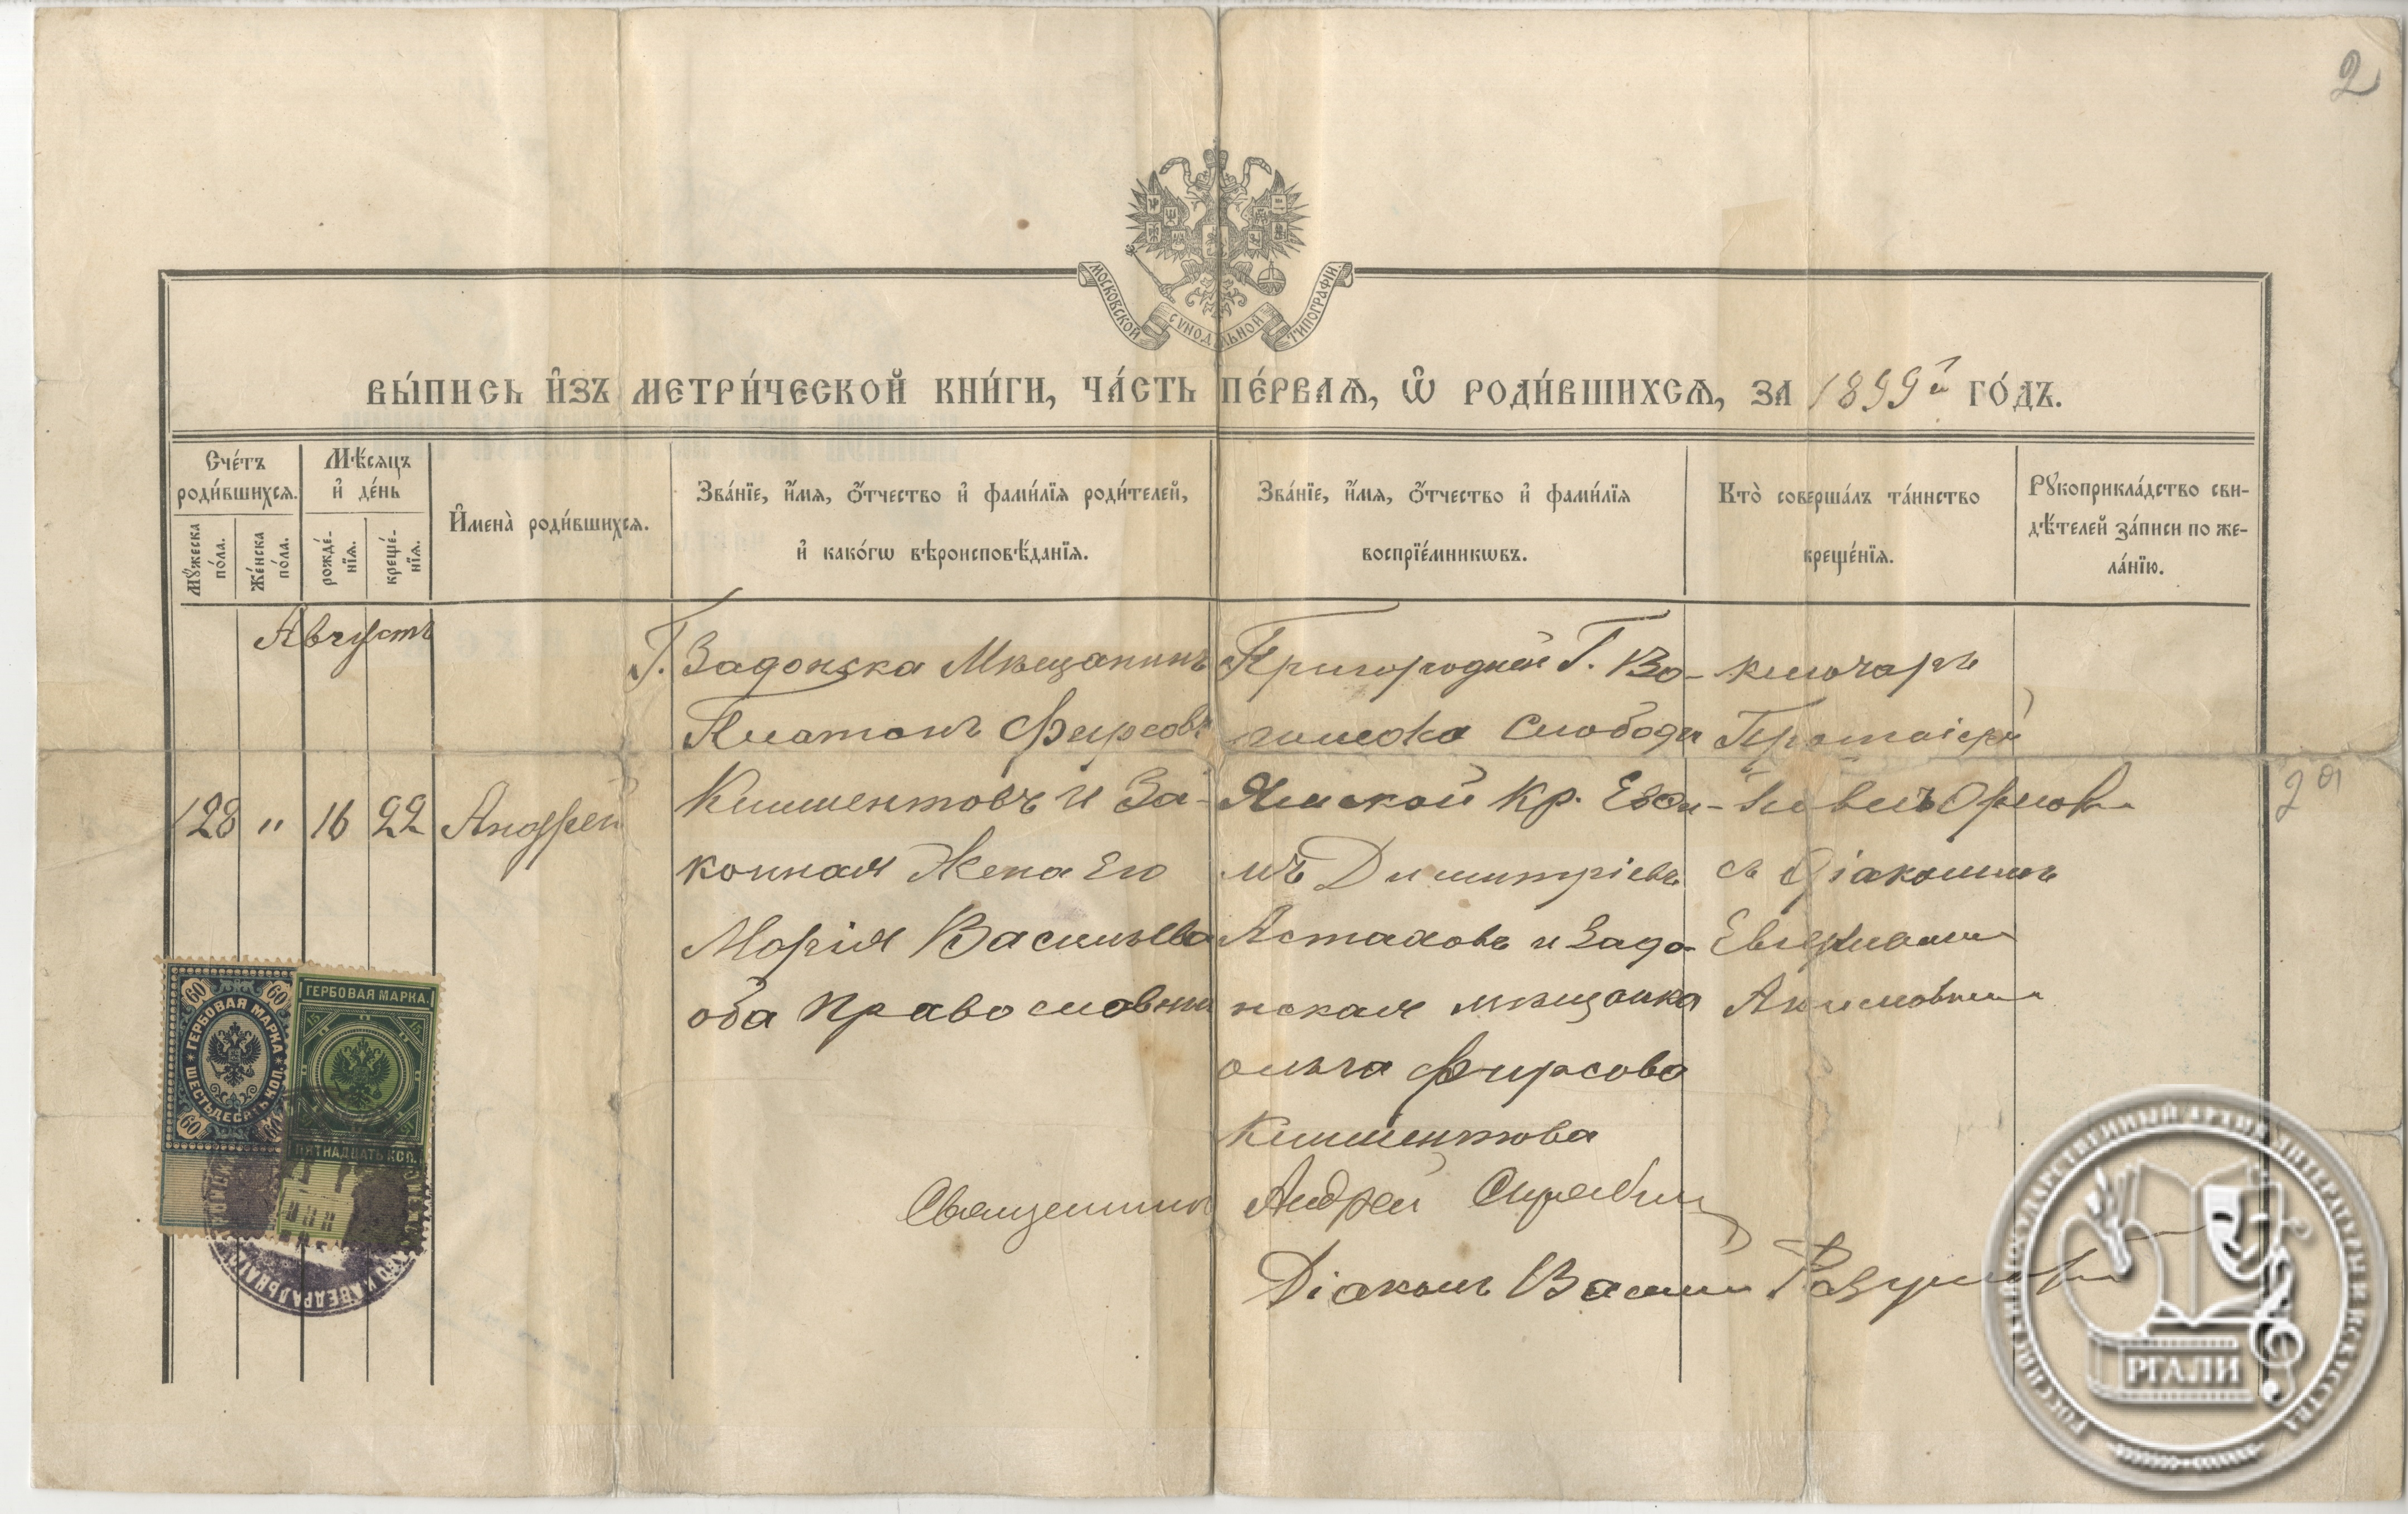 2
МОСКОВСКОЙ СѴНОДАЛЬНОЙ ТИПОГРАФІИ.
ВЫ́ПИСЬ И҆ЗЪ МЕТРИ́ЧЕСКОЙ КНИ́ГИ, ЧА́СТЬ ПЕ́РВАѦ, Ѡ҆ РОДИ́ВШИХСѦ, ЗА 1899й ГО́ДЪ.
Сче́тъ роди́вшихсѧ.
Мꙋ́жеска по́ла.
Же́нска по́ла.
Мѣ́сѧцъ и҆ де́нь
рожде́-нїѧ.
креще́-нїѧ.
И҆мена̀ роди́вшихсѧ.
Зва́нїе, и҆́мѧ, ѻ҆́тчество и҆ фами́лїѧ роди́телей,
и҆ како́гѡ вѣроисповѣ́данїѧ.
Зва́нїе, и҆́мѧ, ѻ҆́тчество и҆ фами́лїѧ
воспрїе́мникѡвъ.
Кто̀ соверша́лъ та́инство
креще́нїѧ.
Рꙋкоприкла́дство сви-
дѣ́телей за́писи по же-
ла́нїю.
Августъ
128 " 16 22
Андрей
Г. Задонска Мѣщанинъ
Платонъ Фирсовъ
Климентовъ и За-
конная Жена Его
Марія Васильева
оба Православные
Пригородней Г. Во-
Слободы
Ямской Кр. Евфи-
мъ Димитріевъ
Астаховъ и Задо-
нская мѣщанка
Ольга Фирсова
Климентова
ключарь
Протоіерей
Павелъ Орловъ
съ Діакономъ
Акимовымъ
Священникъ Андрей
Діаконъ Василій
2 об
60 60
ГЕРБОВАЯ МАРКА
ШЕСТЬДЕСЯТЪ КОП.
60 60
ГЕРБОВАЯ МАРКА.
15 15
ПЯТНАДЦАТЬ КОП.
РОССИЙСКИЙ ГОСУДАРСТВЕННЫЙ АРХИВ ЛИТЕРАТУРЫ И ИСКУССТВА
РГАЛИ